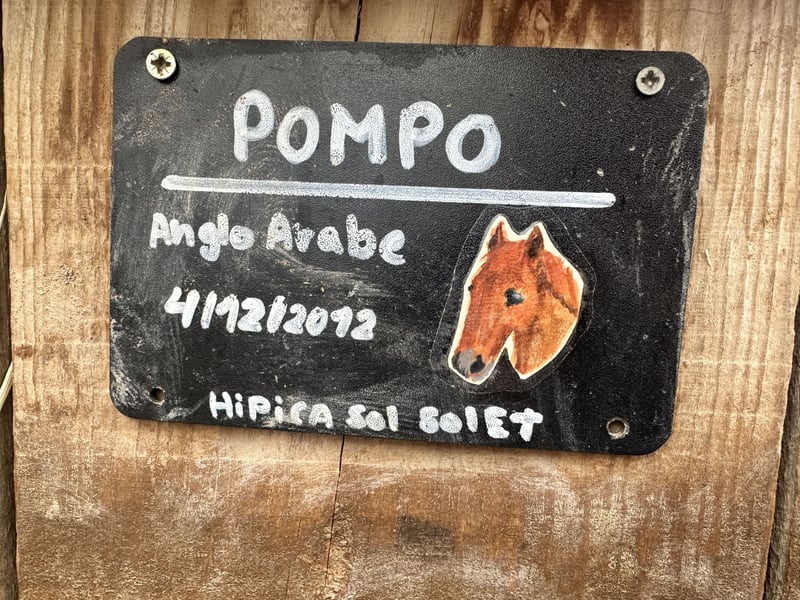 POMPO
Anglo Arabe
4/12/2012
HiPiCA Sol SolET